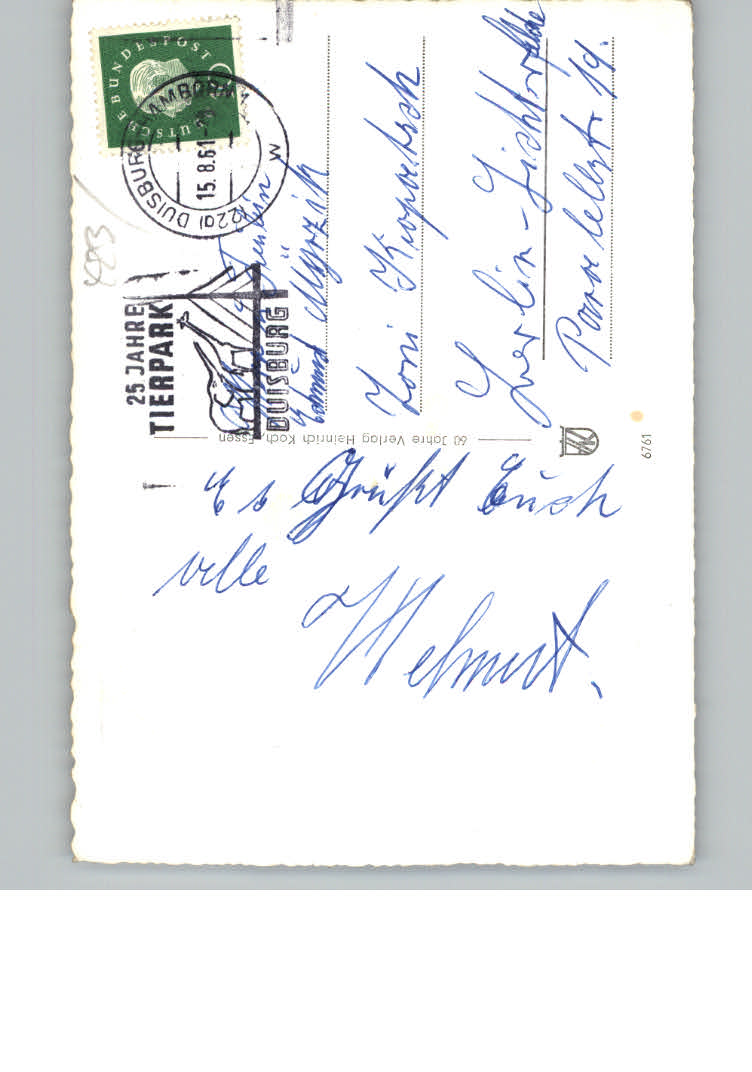 DEUTSCHE BUNDESPOST
(22a) DUISBURG-HAMBORN 1
15.8.61
w
25 JAHRE
TIERPARK
DUISBURG
Toni
Berlin-Lichterfelde
19.
60 Jahre Verlag Heinrich Koch, Essen
6761
483
Es Grüßt Euch
alle
Helmut.